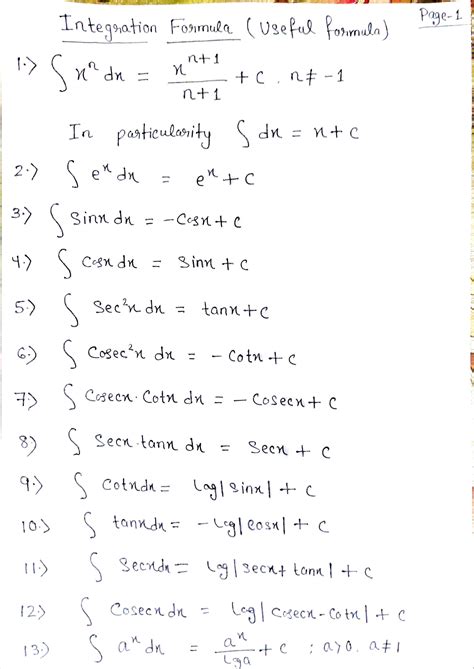 Page-1
Integration Formula (Useful formula)
1.) ∫ xⁿ dx = xⁿ⁺¹/n+1 + c . n ≠ -1
In particularity ∫ dx = x + c
2.) ∫ eˣ dx = eˣ + c
3.) ∫ sinx dx = -Cosx + c
4.) ∫ Cosx dx = Sinx + c
5.) ∫ Sec²x dx = tanx + c
6.) ∫ Cosec²x dx = - Cotx + c
7.) ∫ Cosecx . Cotx dx = - Cosecx + c
8.) ∫ Secx . tanx dx = Secx + c
9.) ∫ Cotx dx = log|sinx| + c
10.) ∫ tanx dx = - log|cosx| + c
11.) ∫ Secx dx = log|secx + tanx| + c
12.) ∫ Cosecx dx = log|Cosecx - Cotx| + c
13.) ∫ aˣ dx = aˣ/log a + c ; a>0. a ≠ 1